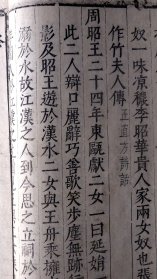 奴一味凉穠李昭華貴人家兩女奴也張
作竹夫人傳
周昭王二十四年東甌獻二女一曰延娟
此二人辯口麗辭巧善歌笑步塵無跡
影及昭王遊於漢水二女與王舟乘擁
溺於水故江漢之人到今思之立祠於